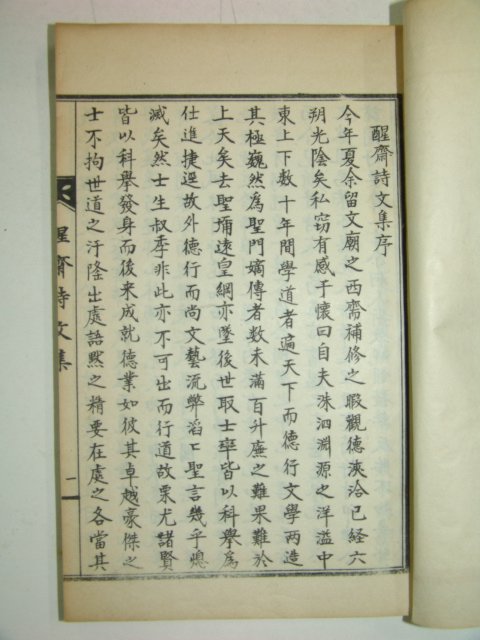 醒齋詩文集序
今年夏余留文廟之西齋補修之暇觀德浹洽已經六
朔光陰矣私窃有感于懷曰自夫洙泗淵源之洋溢中
東上下数十年間學道者遍天下而德行文學兩造
其極巍然爲聖門嫡傳者数未滿百升廡之難果難於
上天矣去聖彌遠皇綱亦墜後世取士率皆以科擧爲
仕進捷逕故外德行而尚文藝流弊滔〻聖言幾乎熄
滅矣然士生叔季非此亦不可出而行道故栗尤諸賢
皆以科擧發身而後来成就德業如彼其卓越豪傑之
士不拘世道之汙隆出處語默之精要在處之各當其
醒齋詩文集
一